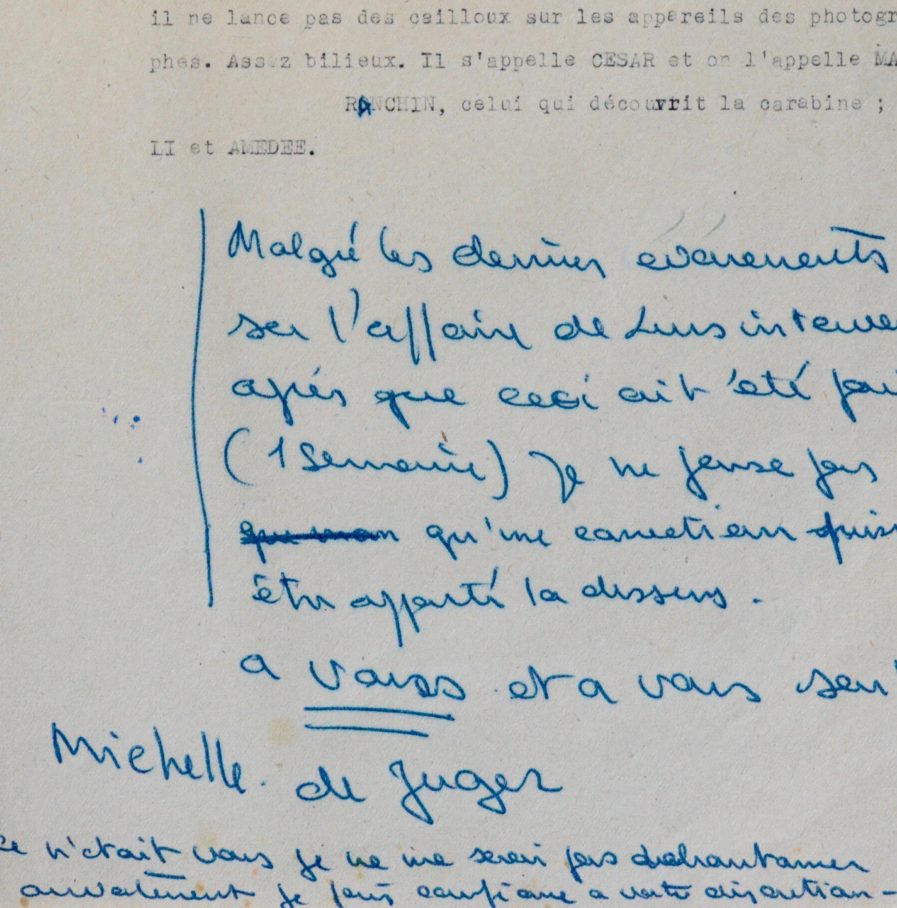 il ne lance pas des cailloux sur les appareils des photogr
phes. Assez bilieux. Il s'appelle CESAR et on l'appelle MA
RANCHIN, celui qui découvrit la carabine ;
LI et AMEDEE.
Malgré les derniers événements
sur l'affaire de Lurs interve
après que ceci ait été fai
(1 semaine) je ne pense pas
qu'une correction puis
être apporté la dessus.
a vous et a vous seul
Michelle. de Juger
ce n'était vous je ne me serai pas
je fais confiance a votre discretion -